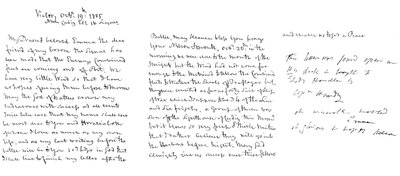 Victory Octr: 19th: 1805
Noon Cadiz ESE 16 Leagues
My Dearest beloved Emma the dear
friend of my bosom the signal has
been made that the Enemys Combined
fleet are coming out of Port.
We have very little Wind so that I have
no hopes of seeing them before tomorrow
May the God of Battles crown my
endeavours with success at all events
I will take care that my name shall ever
be most dear to you and Horatia both
of whom I love as much as my own
life, and as my last writing before the
battle will be to you so I hope in God that
I shall live to finish my letter after the
Battle, may Heaven bless you prays
your Nelson & Bronte. Octr: 20th: in the
morning we were close to the mouth of the
Streights but the Wind had not come far
enough to the Westward to allow the Combined
fleets to weather the shoals off Traflagar but
they were counted as far as forty sail of ships
of War which I suppose to be 34 of the Line
and six frigates, a group of them was
seen off the Lighthouse of Cadiz this Morng
but it blows so very fresh & thick weather
that I rather believe they will go into
the Harbour before night. May God
Almighty give us success over these fellows
and enable us to get a Peace
This letter was found open on
His Desk & brought to
Lady Hamilton by
Captn Hardy
oh miserable wretched
Emma
oh glorious & happy Nelson